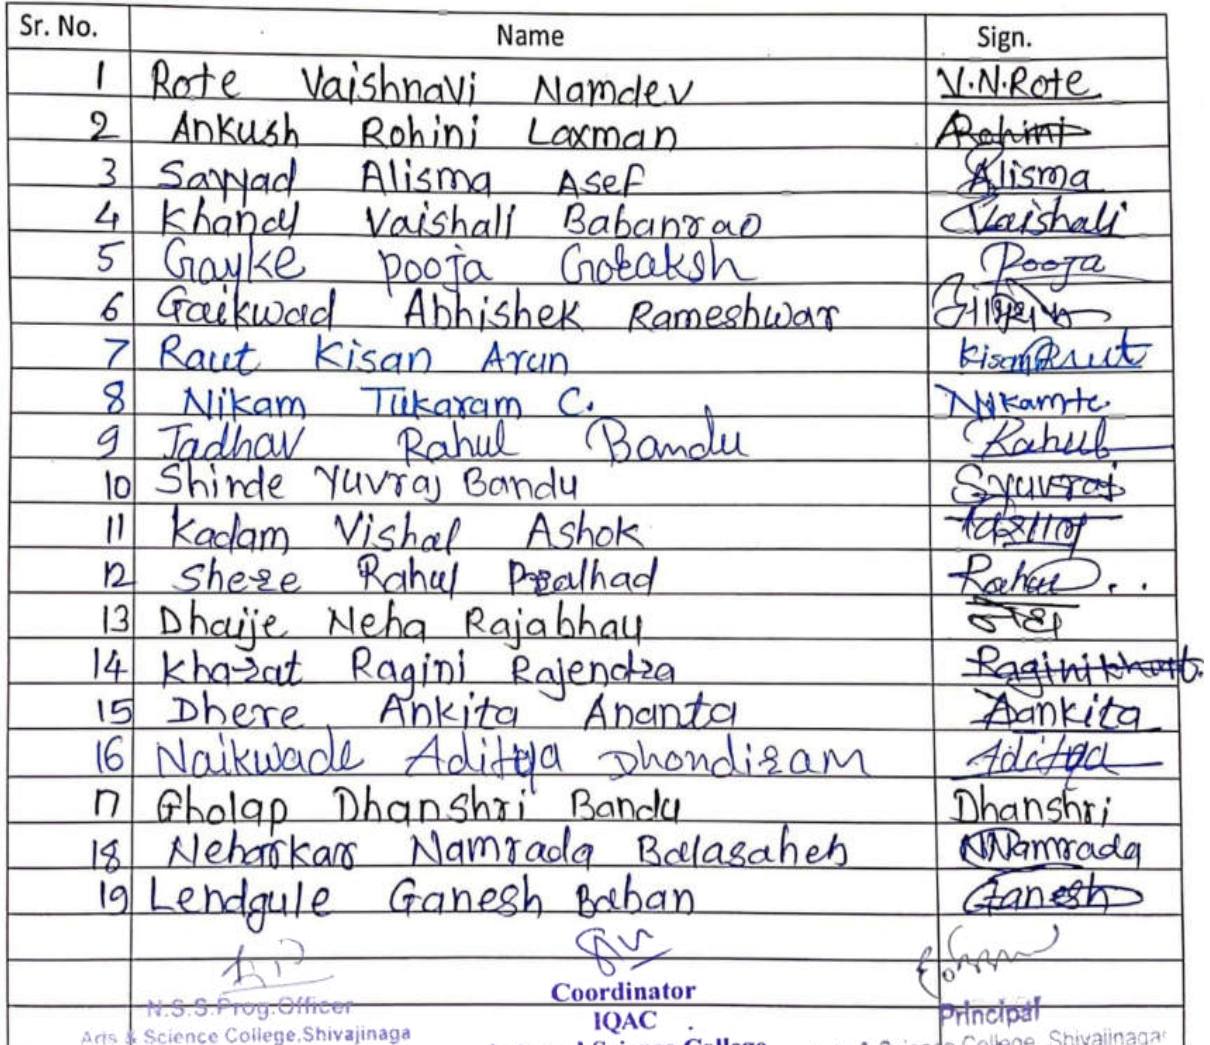 Sr. No. Name Sign.
1 Rote Vaishnavi Namdev V.N.Rote
2 Ankush Rohini Laxman Rohini
3 Sayyad Alisma Asef Alisma
4 Vaishali Babanrao Vaishali
5 Gayke pooja Pooja
6 Gaikwad Abhishek Rameshwar
7 Raut Kisan Arun Kisan Raut
8 Nikam Tukaram C. Nikamtc.
9 Jadhav Rahul Bandu Rahul
10 Shinde Yuvraj Bandu Syuvraj
11 Kadam Vishal Ashok विशाल
12 Shere Rahul Pralhad Rahul
13 Dhaije Neha Rajabhau नेहा
14 Kharat Ragini Rajendra Ragini
15 Dhere Ankita Ananta Aankita
16 Naikwade Aditya Dhondiram Aditya
17 Gholap Dhanshri Bandu Dhanshri
18 Neharkar Namrada Balasaheb NNamrada
19 Lendgule Ganesh Baban Ganesh
N.S.S.Prog.Officer Coordinator Principal
Arts & Science College,Shivajinaga IQAC Science College, Shivajinagar
Science College